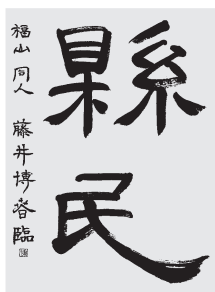 縣民
福山 同人 藤井博春臨